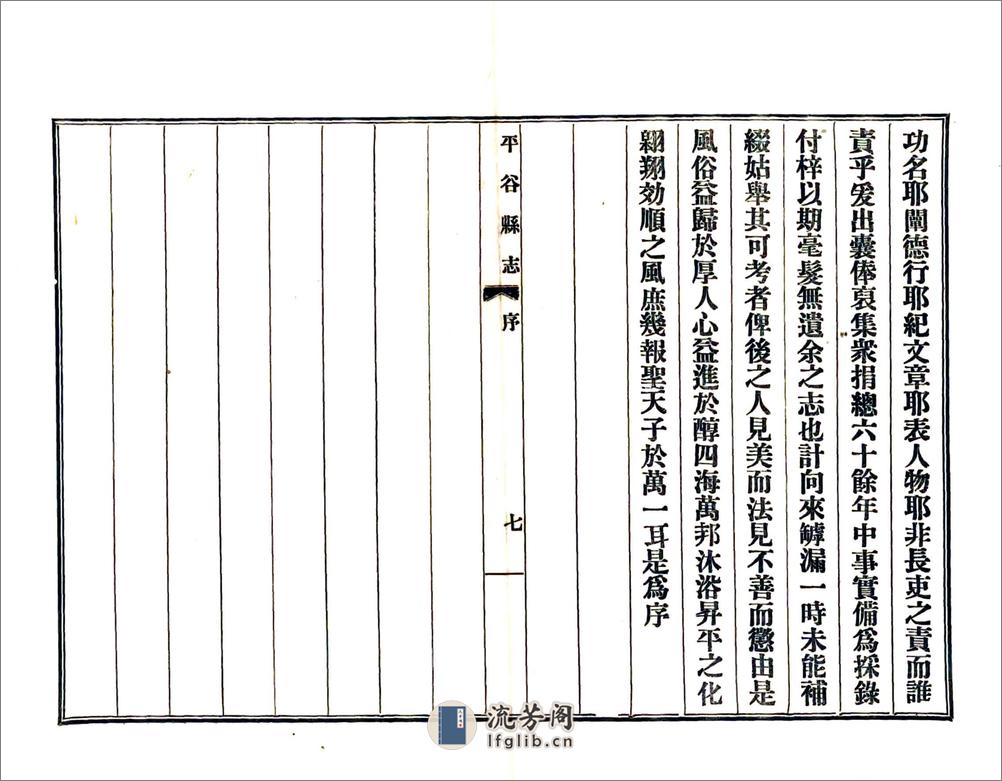 功名耶闡德行耶紀文章耶表人物耶非長吏之責而誰
責乎爰出囊俸裒集衆捐總六十餘年中事實備爲採錄
付梓以期毫髮無遺余之志也計向來罅漏一時未能補
綴姑舉其可考者俾後之人見美而法見不善而懲由是
風俗益歸於厚人心益進於醇四海萬邦沐浴昇平之化
翱翔効順之風庶幾報聖天子於萬一耳是爲序
平谷縣志 序 七
流芳阁
lfglib.cn